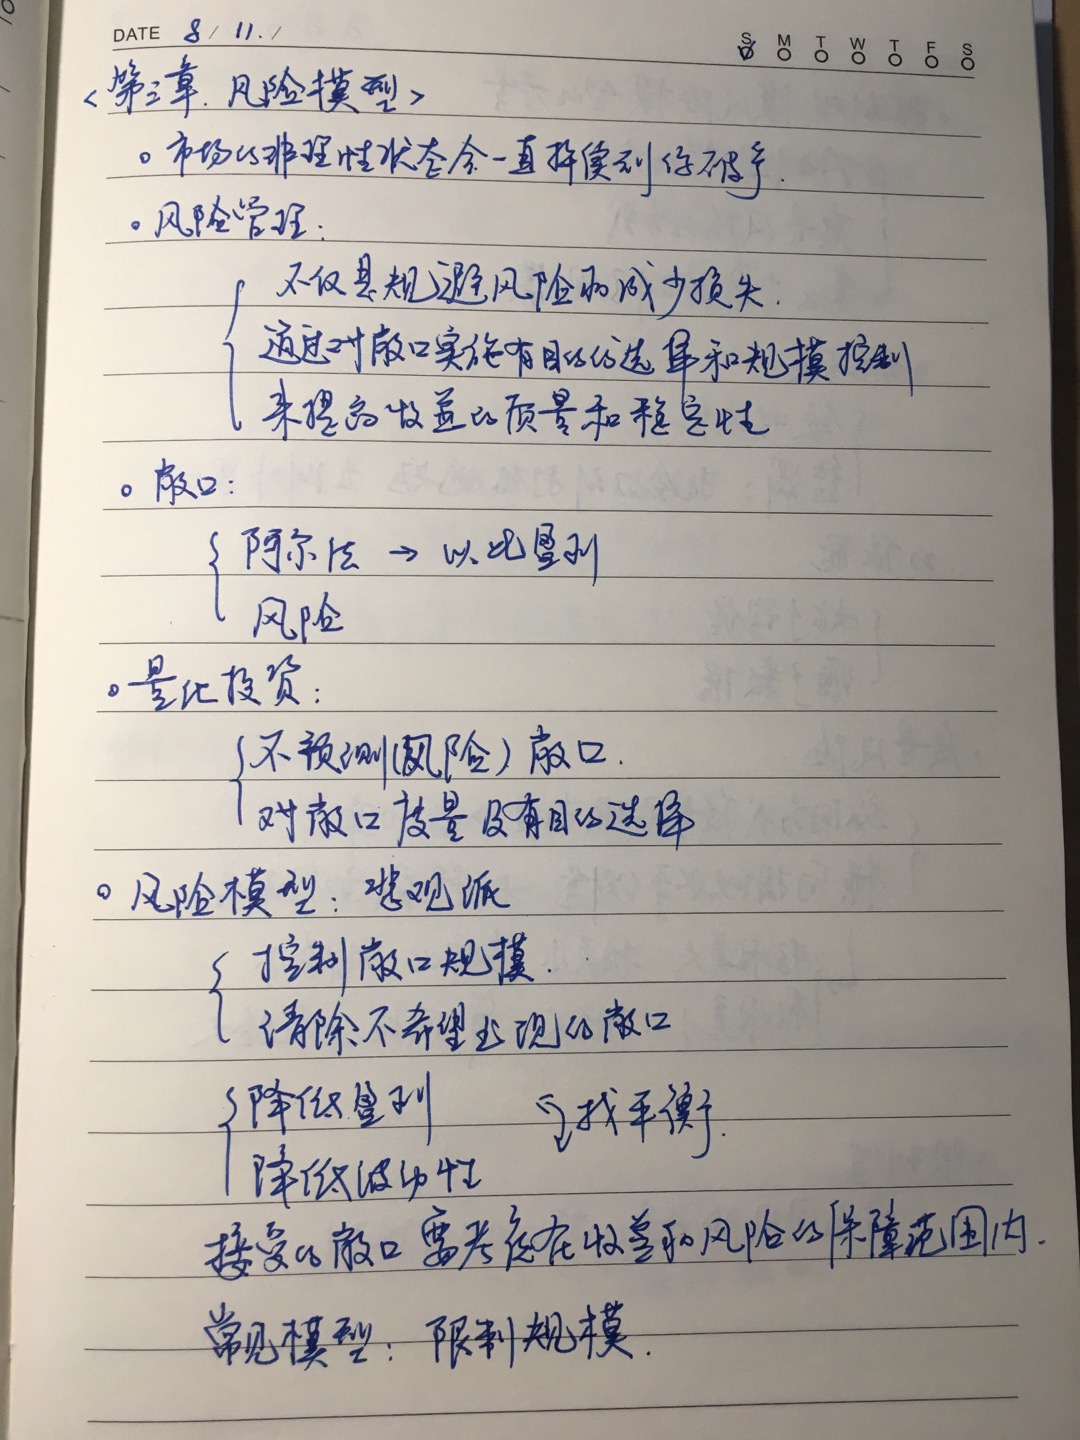 DATE 8 / 11. /
S M T W T F S
<第三章. 风险模型>
。市场的非理性状态会一直持续到你破产.
。风险管理:
不仅是规避风险和减少损失.
通过对敞口实施有目的的选择和规模控制
来提高收益的质量和稳定性
。敞口:
阿尔法 → 以此盈利
风险
。量化投资:
不预测(风险)敞口.
对敞口度量没有目的选择
。风险模型: 悲观派
控制敞口规模.
清除不希望出现的敞口
降低盈利
找平衡.
降低波动性
接受的敞口要考虑在收益和风险的保障范围内.
常见模型: 限制规模.